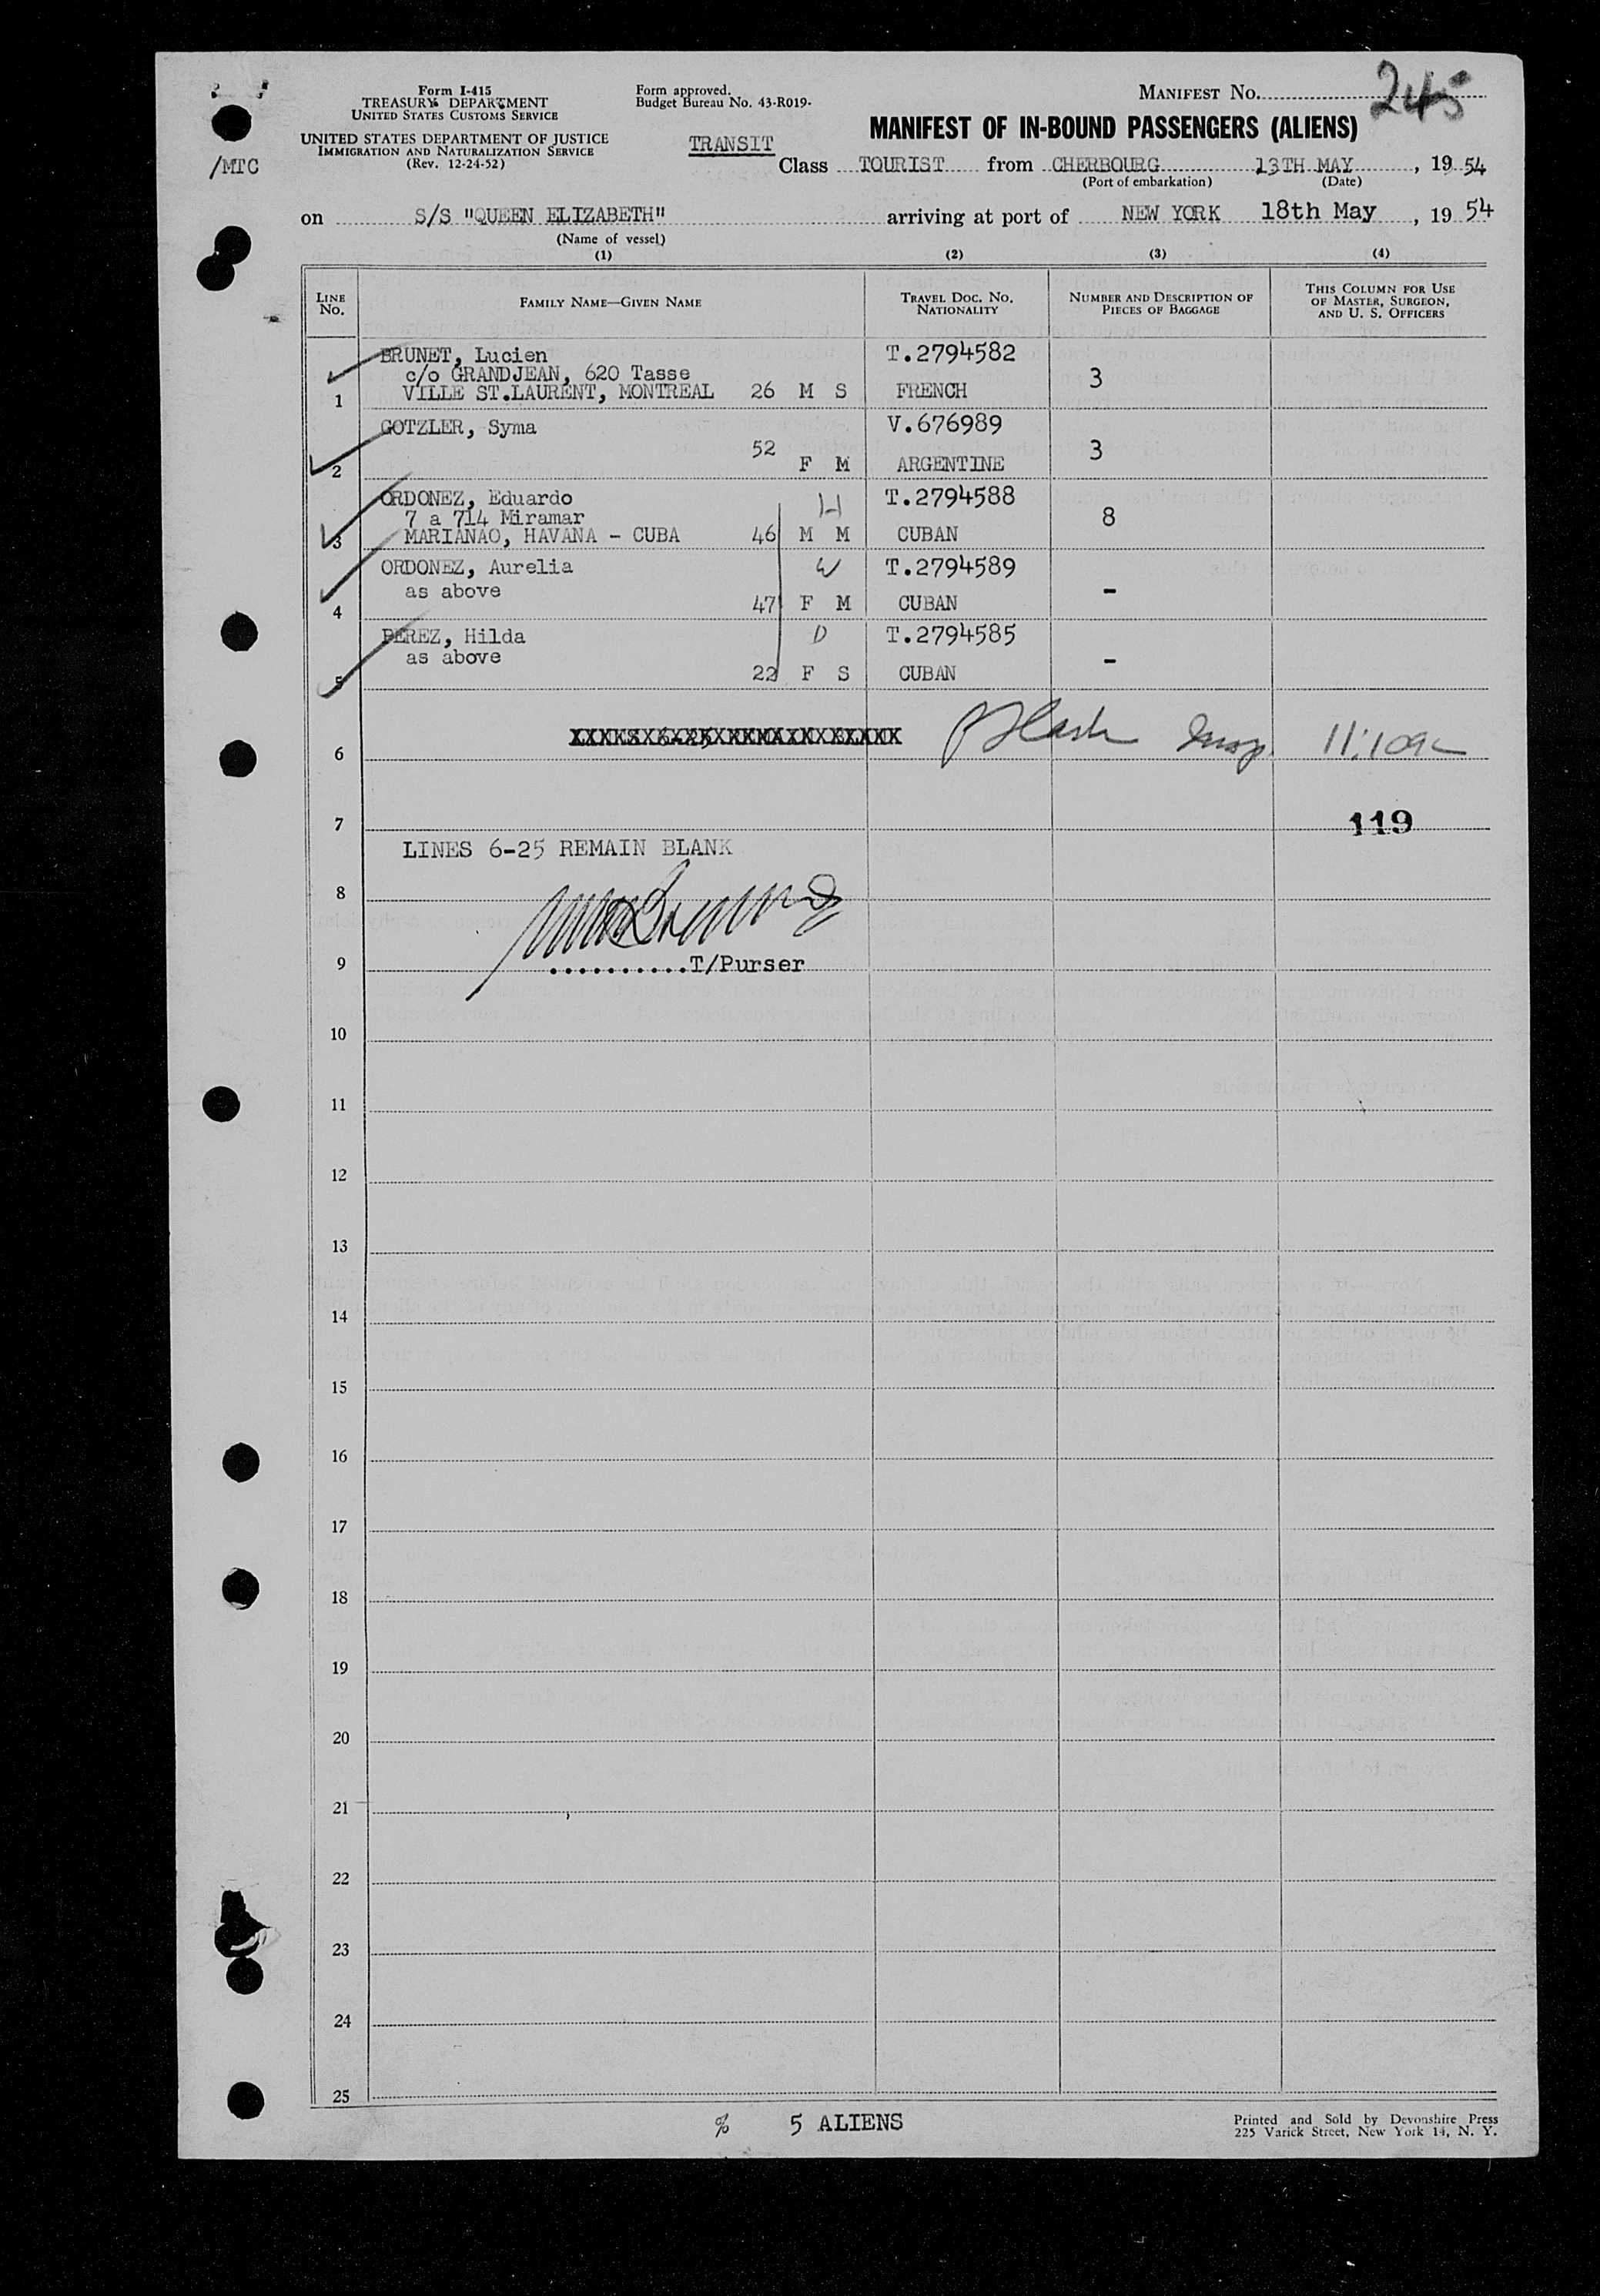 Form I-415
TREASURY DEPARTMENT
UNITED STATES CUSTOMS SERVICE
UNITED STATES DEPARTMENT OF JUSTICE
IMMIGRATION AND NATURALIZATION SERVICE
(Rev. 12-24-52)
/MTC
Form approved.
Budget Bureau No. 43-R019.
TRANSIT
MANIFEST NO. 245
MANIFEST OF IN-BOUND PASSENGERS (ALIENS)
Class TOURIST from CHERBOURG 13TH MAY, 1954
(Port of embarkation) (Date)
on S/S "QUEEN ELIZABETH" arriving at port of NEW YORK 18th May, 1954
(Name of vessel)
(1) (2) (3) (4)
LINE NO. FAMILY NAME—GIVEN NAME TRAVEL DOC. NO. NATIONALITY NUMBER AND DESCRIPTION OF PIECES OF BAGGAGE THIS COLUMN FOR USE OF MASTER, SURGEON, AND U. S. OFFICERS
BRUNET, Lucien T.2794582
c/o GRANDJEAN, 620 Tasse 3
1 VILLE ST.LAURENT, MONTREAL 26 M S FRENCH
GOTZLER, Syma V.676989
52 3
2 F M ARGENTINE
ORDONEZ, Eduardo H T.2794588
7 a 714 Miramar 8
3 MARIANAO, HAVANA - CUBA 46 M M CUBAN
ORDONEZ, Aurelia W T.2794589
as above -
4 47 F M CUBAN
PEREZ, Hilda D T.2794585
as above -
5 22 F S CUBAN
6 Insp. 11:10a
7 119
LINES 6-25 REMAIN BLANK
8
9 ...........T/Purser
10
11
12
13
14
15
16
17
18
19
20
21
22
23
24
25
% 5 ALIENS
Printed and Sold by Devonshire Press
225 Varick Street, New York 14, N. Y.